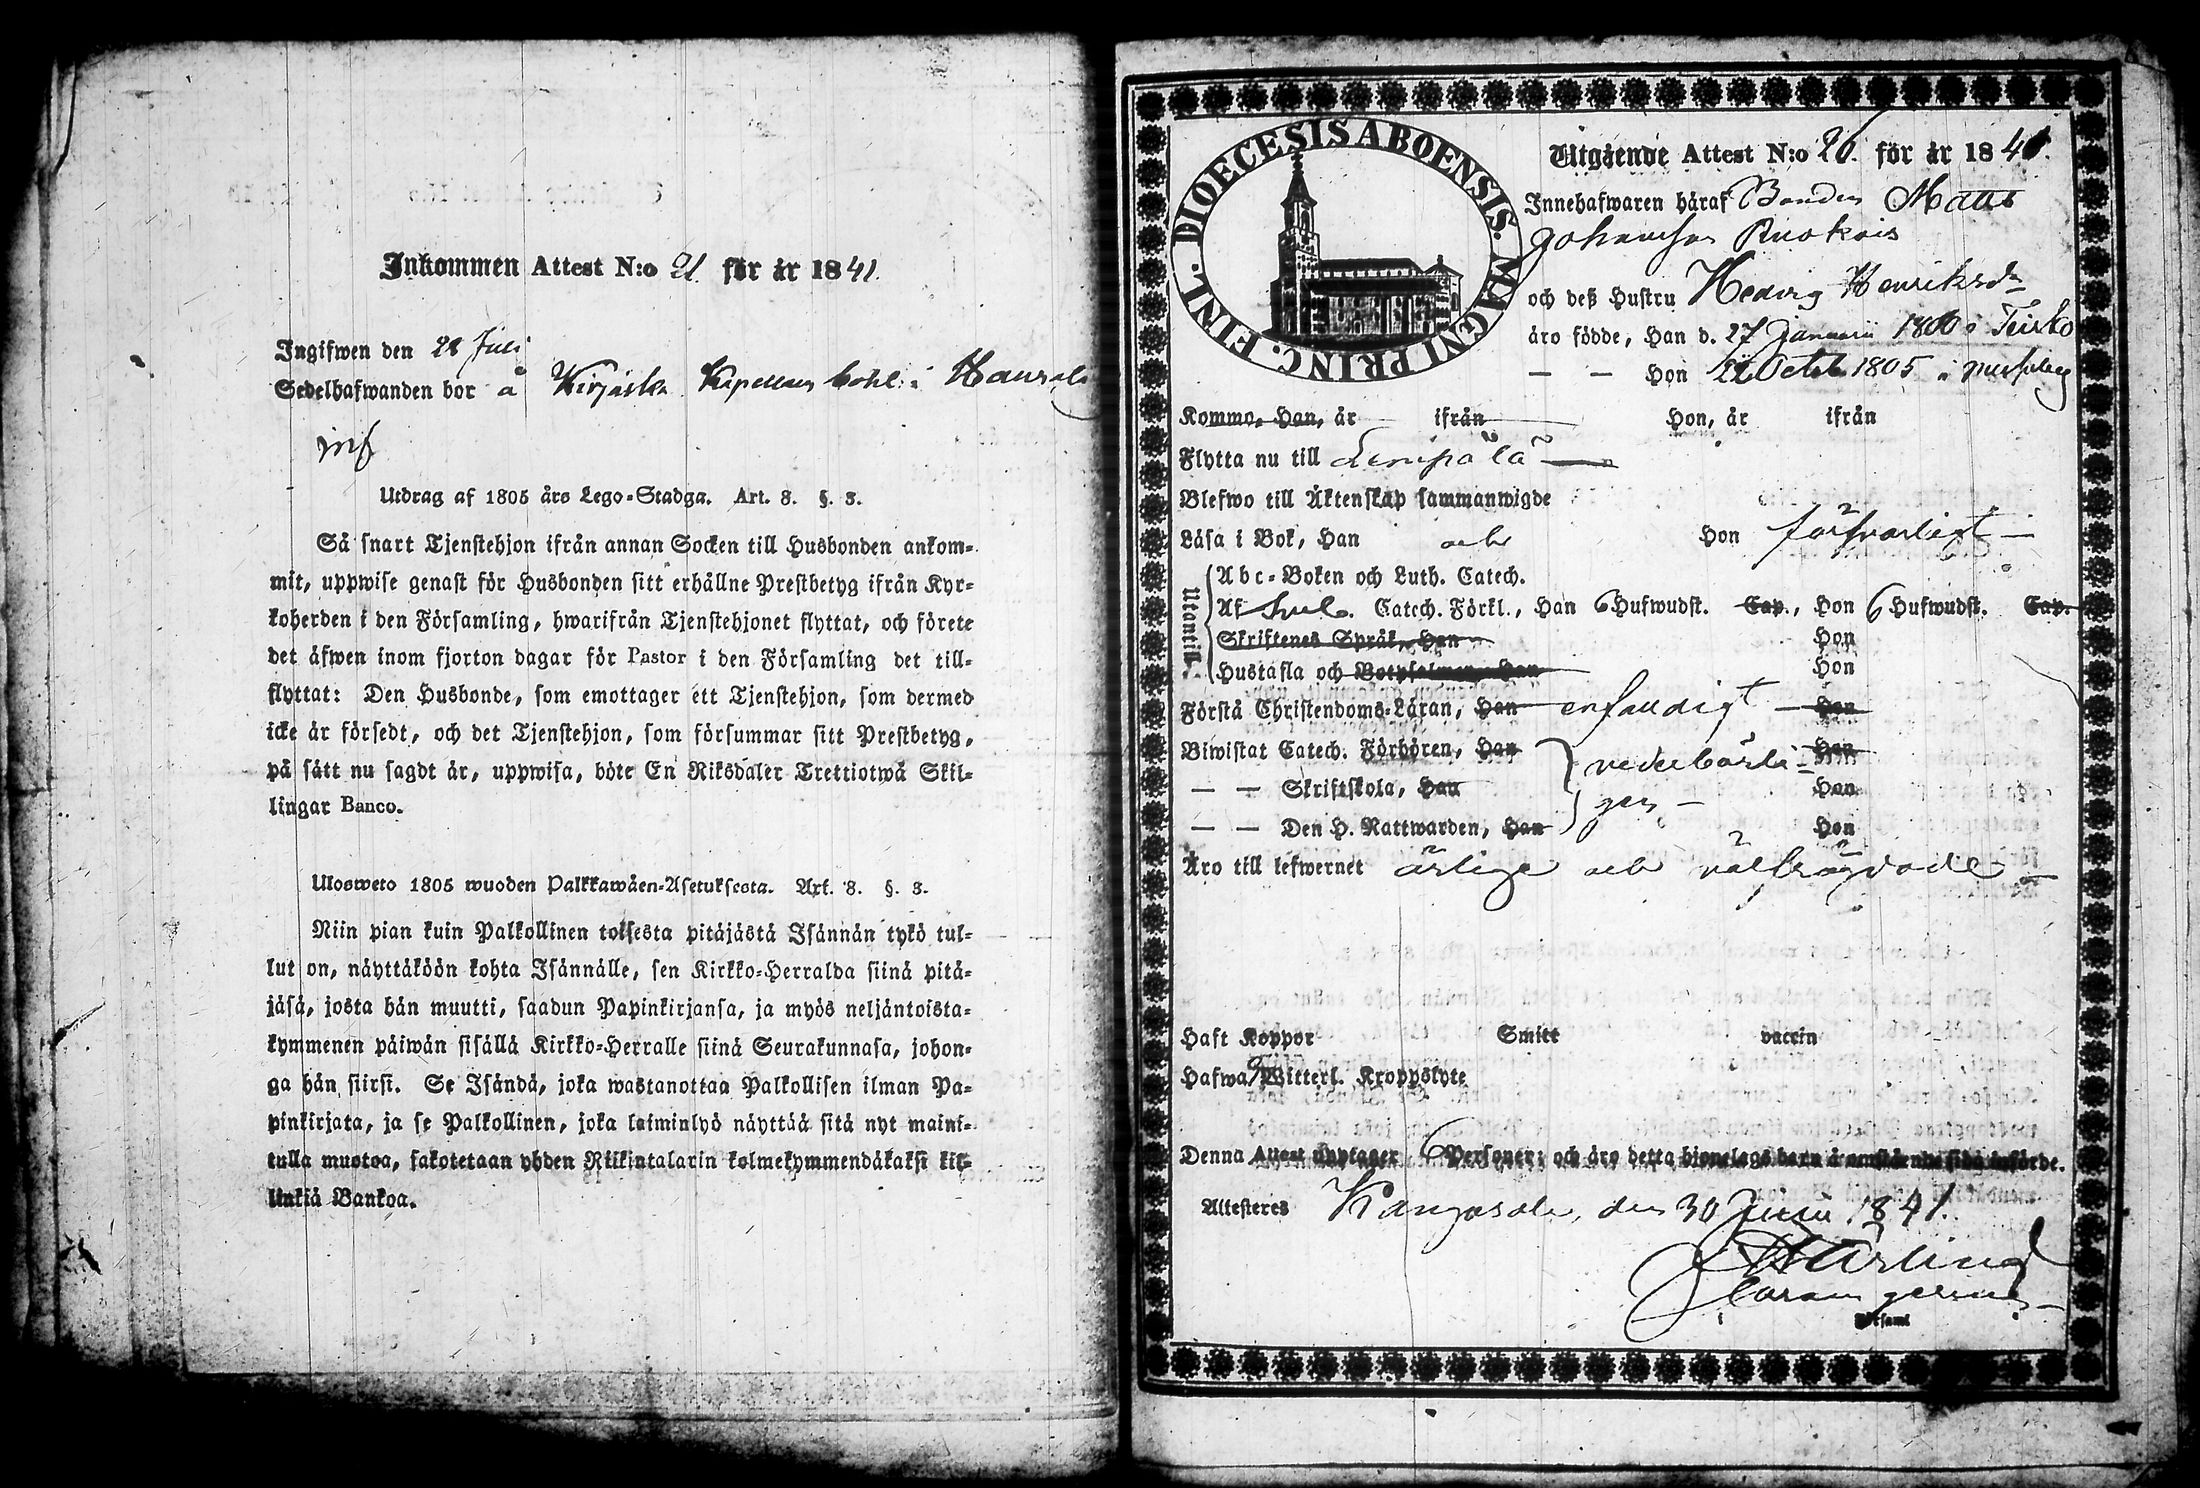 Inkommen Attest N:o 21. för år 1841.
Ingifwen den 28 Juli
Sedelhafwanden bor å Kirjaska Kapellans bohl i
Utdrag af 1805 års Lego-Stadga. Art. 8. §. 3.
Så snart Tjenstehjon ifrån annan Socken till Husbonden ankom-
mit, uppwise genast för Husbonden sitt erhållne Prestbetyg ifrån Kyr-
koherden i den Församling, hwarifrån Tjenstehjonet flyttat, och förete
det äfwen inom fjorton dagar för Pastor i den Församling det till-
flyttat: Den Husbonde, som emottager ett Tjenstehjon, som dermed
icke är försedt, och det Tjenstehjon, som försummar sitt Prestbetyg,
på sätt nu sagdt är, uppwisa, böte En Riksdaler Trettiotwå Skil-
lingar Banco.
Ulosweto 1805 wuoden Palkkawäen-Asetuksesta. Art. 8. §. 3.
Niin pian kuin Palkollinen toisesta pitäjästä Isännän tykö tul-
lut on, näyttäköön kohta Isännälle, sen Kirkko-Herralda siinä pitä-
jäsä, josta hän muutti, saadun Papinkirjansa, ja myös neljäntoista-
kymmenen päiwän sisällä Kirkko-Herralle siinä Seurakunnasa, johon-
ga hän siirsi. Se Isändä, joka wastanottaa Palkollisen ilman Pa-
pinkirjata, ja se Palkollinen, joka laiminlyö näyttää sitä nyt maini-
tulla muotoa, sakotetaan yhden Riikintalarin kolmekymmendäkaksi kil-
linkiä Bankoa.
DIOECESIS ABOENSIS. MAGNI PRINC. FINL.
Utgående Attest N:o 26. för år 184
Innehafwaren häraf Bonden Matts
Johansson
och deß Hustru Hedvig Henriksdr
äro födde, Han d. 27 Januarii 1800 i Teisko
— — Hon 22 Octob 1805 i
Kommo, Han, år ifrån Hon, år ifrån
Flytta nu till Lempälä
Blefwo till Äktenskap sammanwigde
Läsa i Bok, Han och Hon försvarligt
Utantill.
Abc-Boken och Luth. Catech.
Af Sveb. Catech. Förkl., Han 6 Hufwudst. Cap., Hon 6 Hufwudst. Cap.
Skriftenes Språk, Han Hon
Hustafla och Botpsalmen, Han Hon
Förstå Christendoms-Läran, Han enfaldigt Hon
Biwistat Catech. Förhören, Han vederbörli- Hon
— — Skriftskola, Han gen Hon
— — Den H. Nattwarden, Han Hon
Äro till lefwernet ärlige och välfrägdade
Haft Koppor Smitt vaccin
Hafwa Witterl. Kroppslyte
Denna Attest upptager 6 Personer; och äro detta hjonelags barn å omstående sida införde.
Attesteres Kangasala, den 30 Junii 1841.
Församl